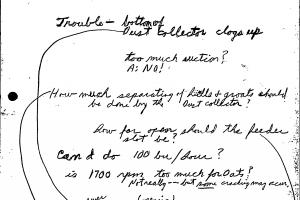 Trouble - bottom of
Dust Collector clogs up
too much suction?
A: NO!
How much separating of hulls & groats should
be done by the Dust collector?
How far open should the feeder
slot be?
Can I do 100 bu/hour?
is 1700 rpm too much for Oats?
Not really -- but some cracking may occur
over